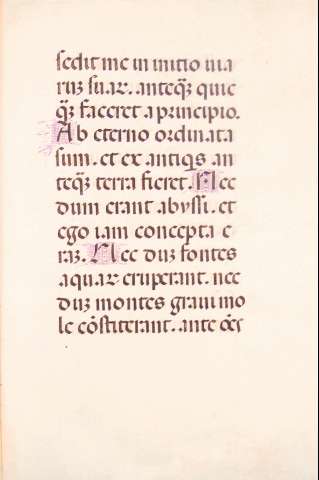 sedit me in initio uia
rūꝫ suaꝝ. anteqꝫ quic
qꝫ faceret a principio.
Ab eterno ordinata
sum. et ex antiqis an
teqꝫ terra fieret. Nec
dum erant abyssi. et
ego iam concepta e
raꝫ. Nec duꝫ fontes
aquaꝝ eruperant. nec
duꝫ montes graui mo
le cōstiterant. ante oēs